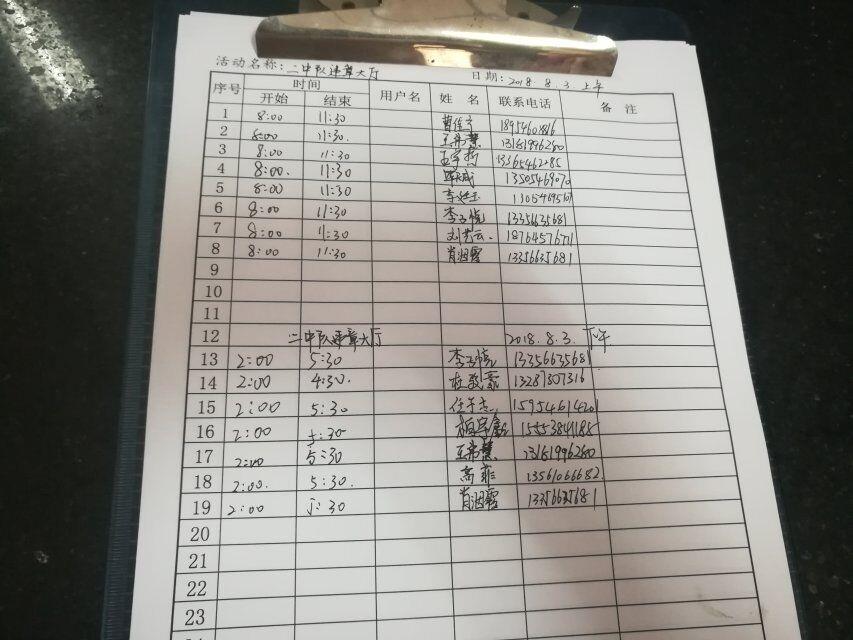 活动名称: 二中队违章大厅 日期: 2018.8.3 上午
序号 时间 用户名 姓 名 联系电话 备 注
开始 结束
1 8:00 11:30
2 8:00 11:30 13161996280
3 8:00 11:30 13365462285
4 8:00. 11:30 13505469070
5 8:00 11:30
6 8:00 11:30 李子悦 13356635681
7 8:00 11:30 刘艺云. 18764576771
8 8:00 11:30 肖润露 13356635681
9
10
11
12 二中队违章大厅 2018.8.3. 下午
13 2:00 5:30 李子悦 13356635681
14 2:00 4:30. 杜政豪 13287307316
15 2:00 5:30 任子杰 15954614201
16 2:00 5:30 15553841185
17 2:00 5:30 13161996280
18 2:00. 5:30. 高菲 13561066682.
19 2:00 5:30 肖润露 13356635681
20
21
22
23